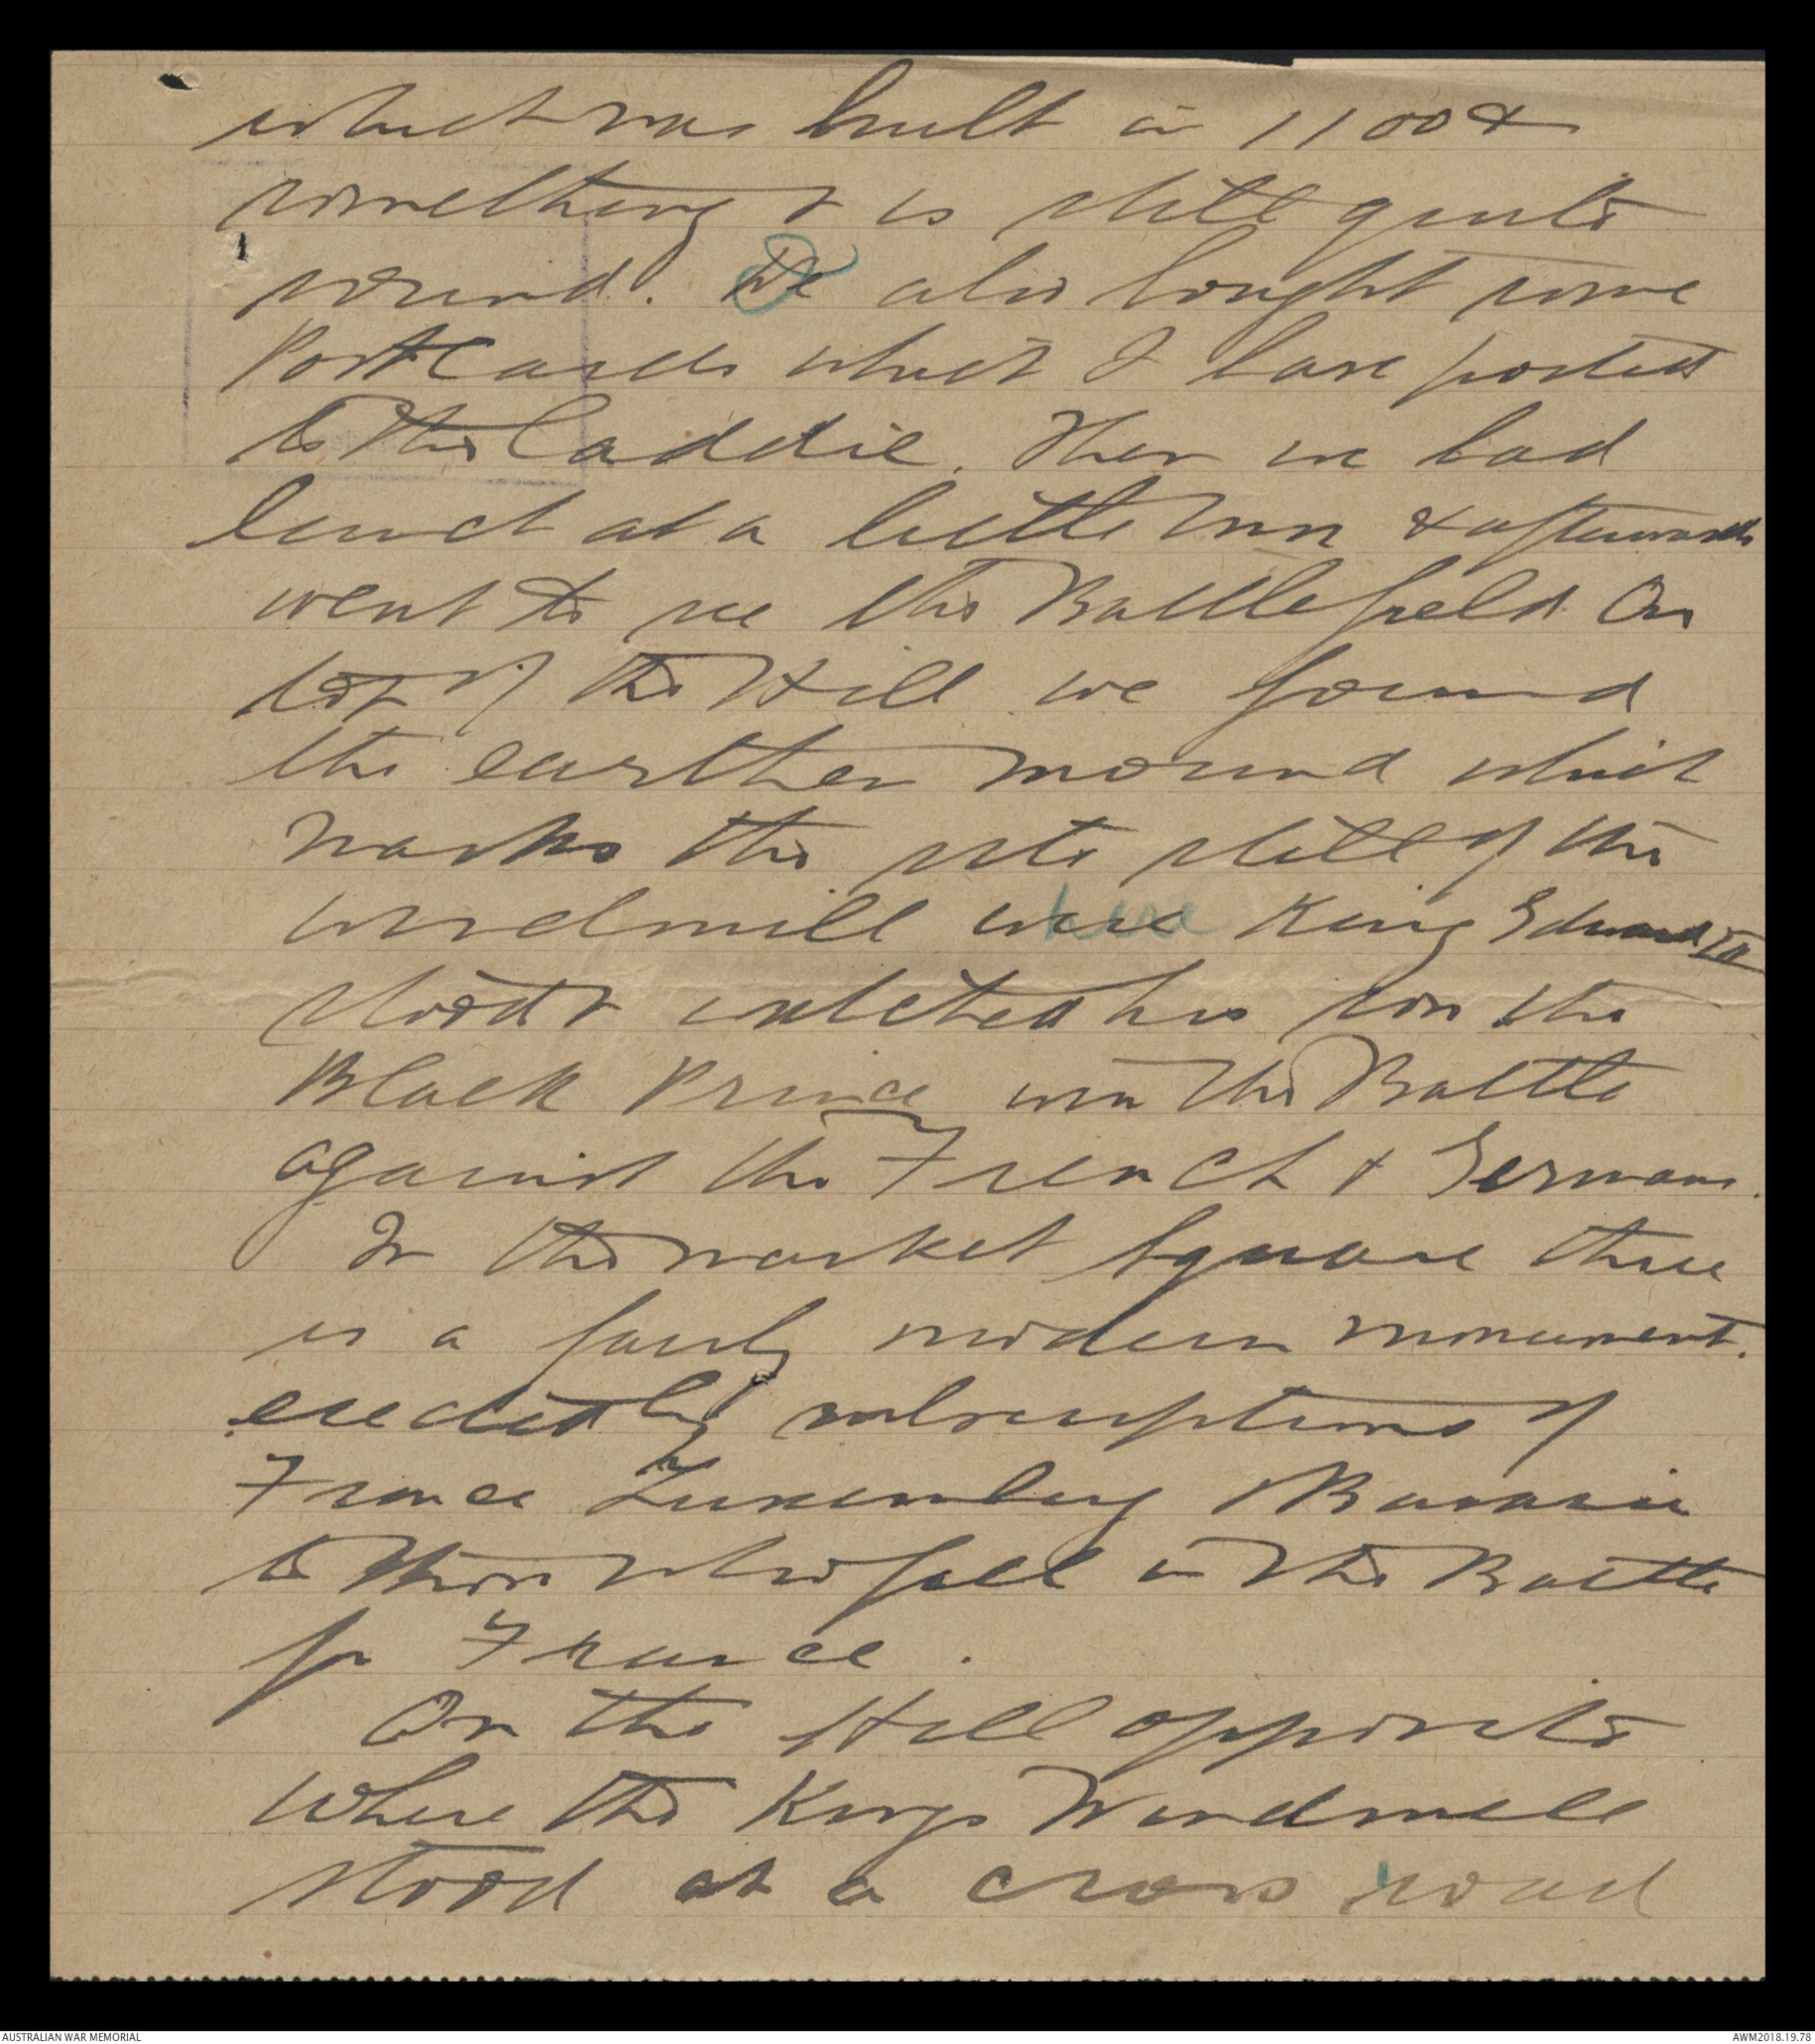 which was built in 1100 &
something & is still quite
sound. We also bought some
Post Cards which I have posted
to the Laddie. Then we had
lunch at a little Inn & afterwards
went to see the Battlefield On
top of the Hill we found
the earthen mound which
marks the site still of the
windmill where King Edward III
stood & watched his son the
Black Prince win the Battle
against the French & Germans.
In the market Square there
is a fairly modern monument.
erected by subscriptions of
France Luxemburg & Bavaria
to those who fell in the Battle
for France.
On the Hill opposite
where the Kings Windmill
stood at a cross road
AUSTRALIAN WAR MEMORIAL
AWM2018.19.78